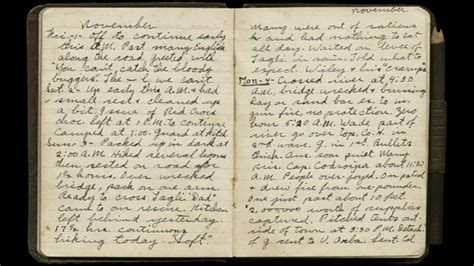 November.
Fri-1- Off to continue early
this A.M. Past many English
along the road, greeted with
"You can't catch the bloody
buggers. The - - - - can't
Sat. 2- Up early this A.M. & had
small rest & cleaned up
a bit. Issue of Red Cross
choc. left at 1 P.M. to continue
Camped at 9:00. Guard at
Sun. 3- Packed up in dark at
2:00 A.M. Hiked several hours
then rested on road
1½ hours. Over wrecked
bridge, pack on one arm.
Ready to cross Tagli "Dad"
came to our rescue. Kitchen
left behind yesterday
17½ hrs. continuous
hiking today. Soft.
November.
Many were out of rations
& and had nothing to eat
all day. Waited on levee of
Tagli in rain. Told what to
expect. Wiley, & his
Mon-4- Crossed river at 4:30
A.M., bridge wrecked &
hay on sand bar es. to
gun fire, no protection. Zero
hour 5:30 A.M. Wade part of
river go over top. Co. H. in
2nd wave. G. in 1st. Bullets
thick. Aus. soon quit. Many
Pris. Cap. Codroipo about 11:30
A.M. People over-joyed. One patted
& drew fire from one-pounder
One just past about 10 feet
2,000,000 worth of supplies
captured. Pitched tents out-
side of town at 3:30 P.M. Detach.
of G. sent to V. Orba. Sent to